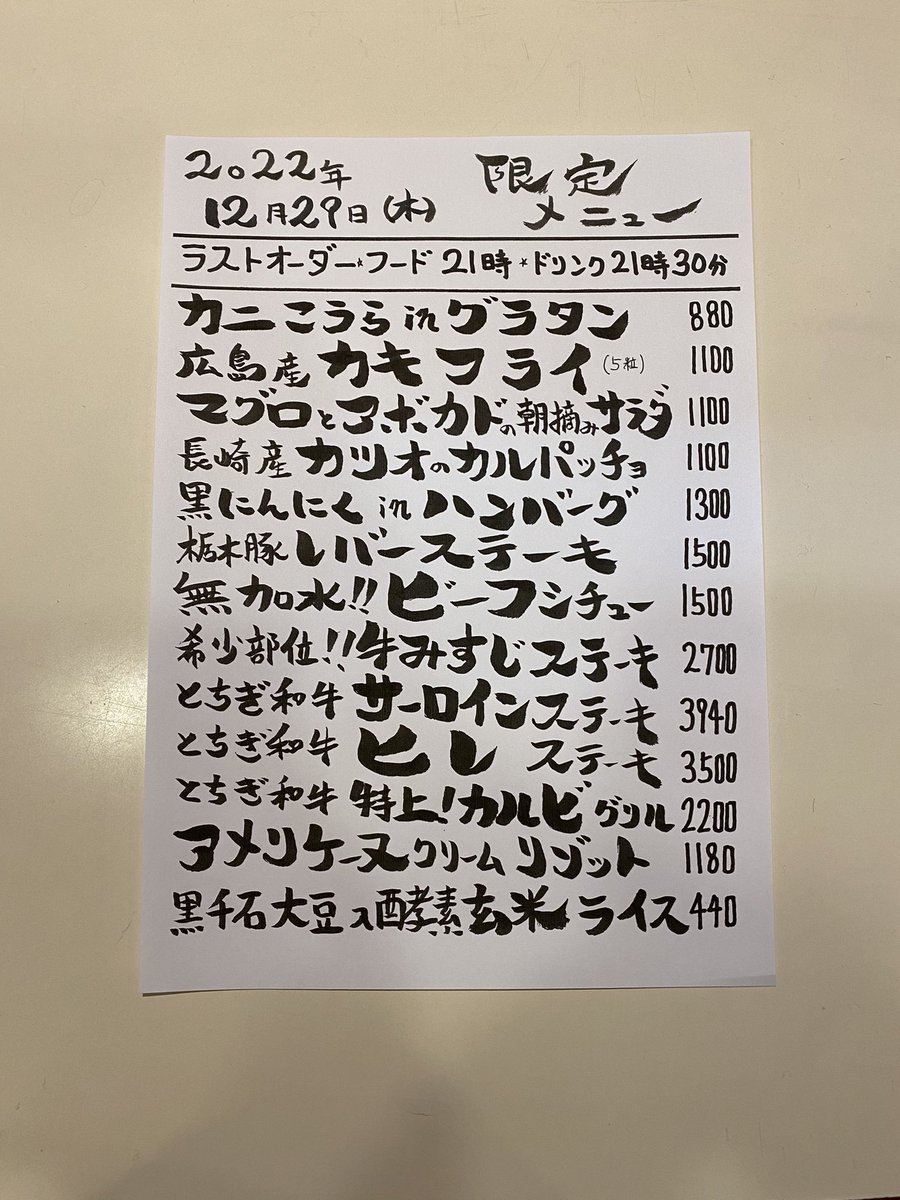 2022年 限定
12月29日(木) メニュー
ラストオーダー★フード 21時★ドリンク21時30分
カニこうら in グラタン 880
広島産 カキフライ (5粒) 1100
マグロとアボカドの朝摘みサラダ 1100
長崎産 カツオのカルパッチョ 1100
黒にんにく in ハンバーグ 1300
栃木豚 レバーステーキ 1500
無加水!! ビーフシチュー 1500
希少部位!! 牛みすじステーキ 2700
とちぎ和牛 サーロインステーキ 3940
とちぎ和牛 ヒレ ステーキ 3500
とちぎ和牛 特上!カルビグリル 2200
アメリケーヌクリームリゾット 1180
黒千石大豆入酵素玄米ライス 440